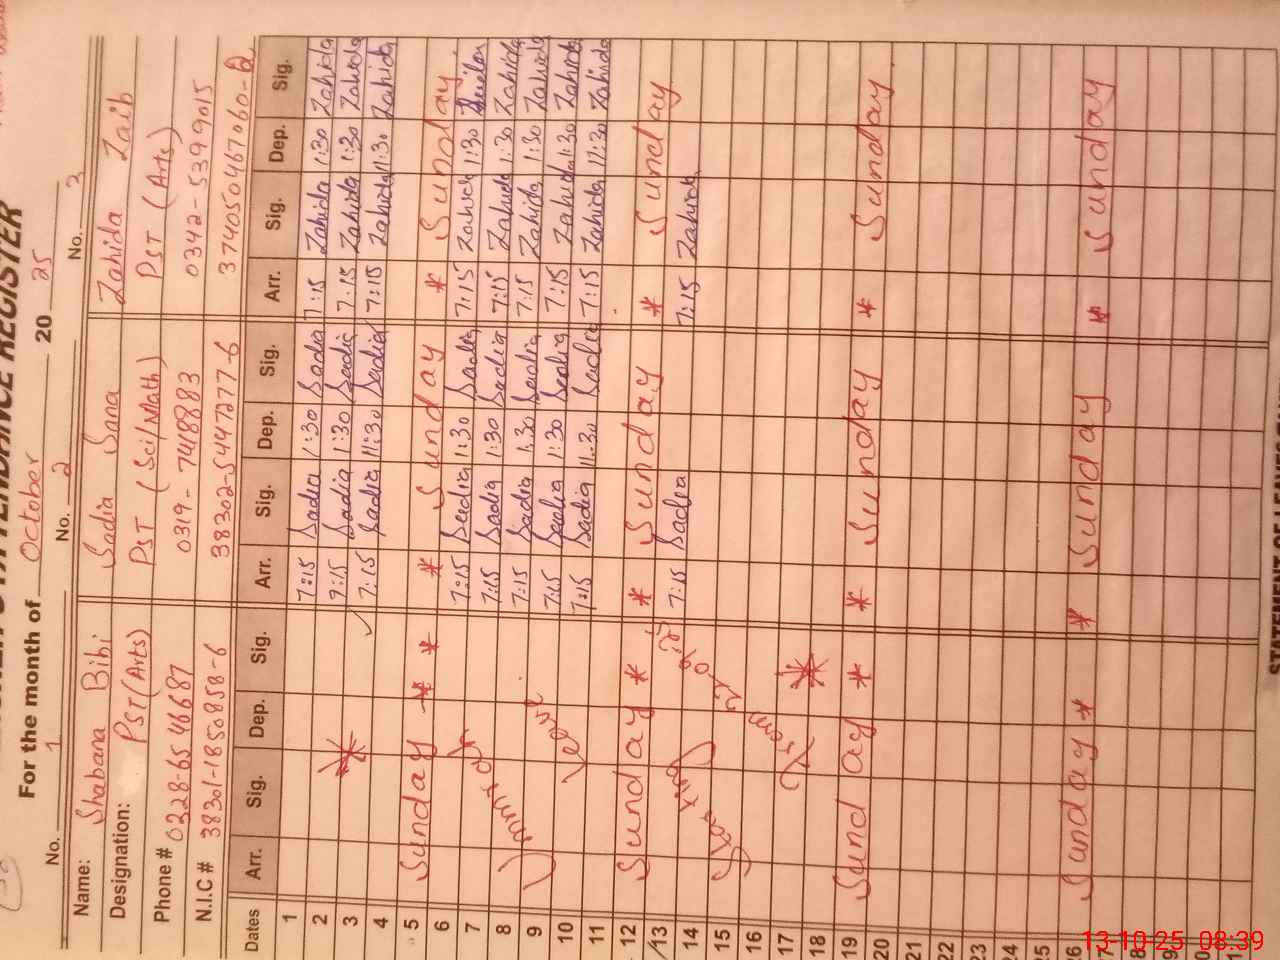 ATTENDANCE REGISTER
For the month of October 20 25
No. 1 No. 2 No. 3
Name: Shabana Bibi Sadia Sana Zahida Zaib
Designation: PST (Arts) PST (Sci/Math) PST (Arts)
Phone # 0328-6546687 0319-7418883 0342-5399015
N.I.C # 38301-1850858-6 38302-5447277-6 374050467060-2
Dates Arr. Sig. Dep. Sig. Arr. Sig. Dep. Sig. Arr. Sig. Dep. Sig.
1 7:15 Sadia 1:30 Sadia 7:15 Zahida 1:30 Zahida
2 7:15 Sadia 1:30 Sadia 7:15 Zahida 1:30 Zahida
3 7:15 Sadia 11:30 Sadia 7:15 Zahida 11:30 Zahida
4
5 Sunday * * * Sunday * Sunday
6 7:15 Sadia 1:30 Sadia 7:15 Zahida 1:30
7 7:15 Sadia 1:30 Sadia 7:15 Zahida 1:30 Zahida
8 7:15 Sadia 1:30 Sadia 7:15 Zahida 1:30 Zahida
9 Leave 7:15 Sadia 1:30 Sadia 7:15 Zahida 1:30 Zahida
10 7:15 Sadia 11:30 Sadia 7:15 Zahida 11:30 Zahida
11
12 Sunday * * Sunday * Sunday
13 7:15 Sadia 7:15 Zahida
14
15
16
17
18
19 Sunday * * Sunday * Sunday
20
21
22
23
24
25
26 Sunday * * Sunday * Sunday
27
28
29
30
31
STATEMENT OF LEAVE
13-10-25 08:39